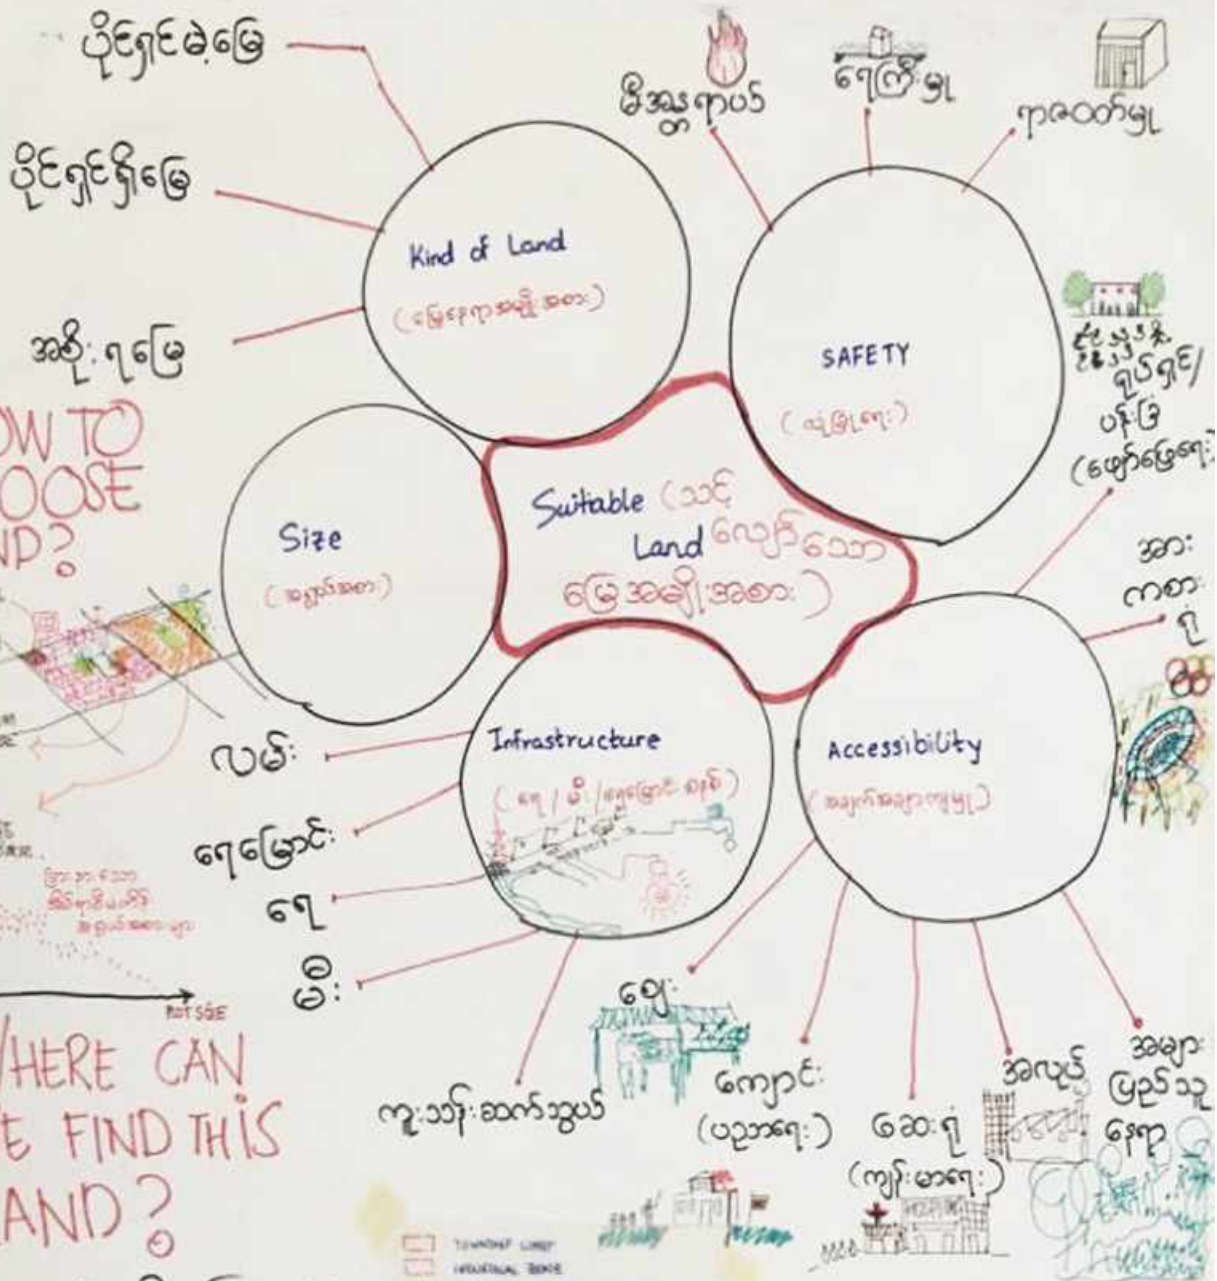 ပိုင်ရှင်မဲ့မြေ
ပိုင်ရှင်ရှိမြေ
အစိုးရမြေ
Kind of Land
(မြေနေရာအမျိုးအစား)
မီးအန္တရာယ်
ရေကြီးမှု
ရာဇဝတ်မှု
SAFETY
(လုံခြုံရေး)
ရုပ်ရှင်/
ပန်းခြံ
(ဖျော်ဖြေရေး)
OW TO
OOSE
ND?
Size
(အရွယ်အစား)
Suitable (သင့်
Land လျော်သော
မြေအမျိုးအစား)
အား
ကစား
ရုံ
Infrastructure
(ရေ / မီး / ရေမြောင်းစနစ်)
Accessibility
(အချက်အချာကျမှု)
လမ်း
ရေမြောင်း
ရေ
မီး
ကူးသန်းဆက်သွယ်
ဈေး
ကျောင်း
(ပညာရေး)
ဆေးရုံ
(ကျန်းမာရေး)
HOSPITAL
အလုပ်
အများ
ပြည်သူ
နေရာ
PLOT SIZE
HERE CAN
E FIND THIS
AND?
TOWNSHIP LIMIT
INDUSTRIAL ZONE